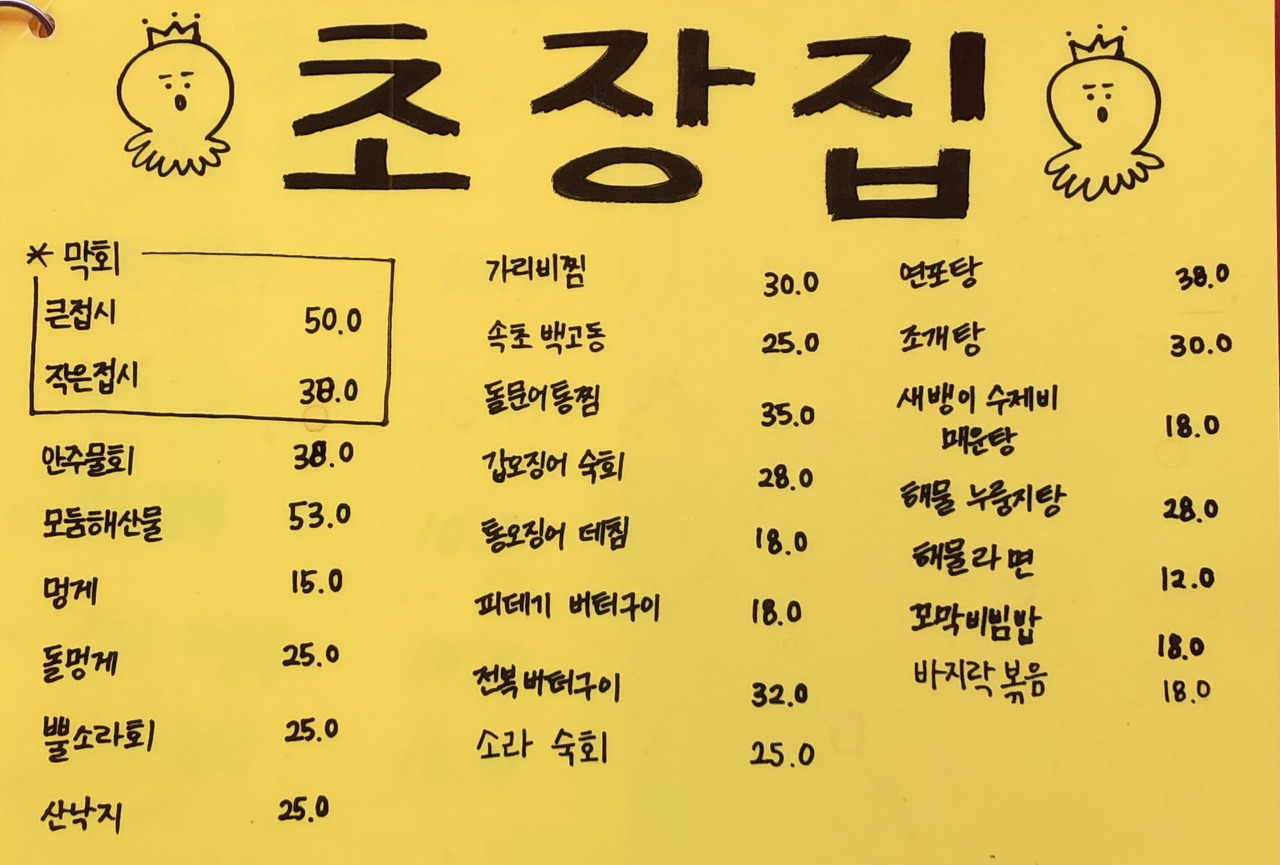 초장집
* 막회
큰접시 50.0
작은접시 38.0
안주물회 38.0
모둠해산물 53.0
멍게 15.0
돌멍게 25.0
뿔소라회 25.0
산낙지 25.0
가리비찜 30.0
속초 백고동 25.0
돌문어통찜 35.0
갑오징어 숙회 28.0
통오징어 데침 18.0
피데기 버터구이 18.0
전복버터구이 32.0
소라 숙회 25.0
연포탕 38.0
조개탕 30.0
새뱅이 수제비
매운탕 18.0
해물 누룽지탕 28.0
해물라면 12.0
꼬막비빔밥 18.0
바지락 볶음 18.0